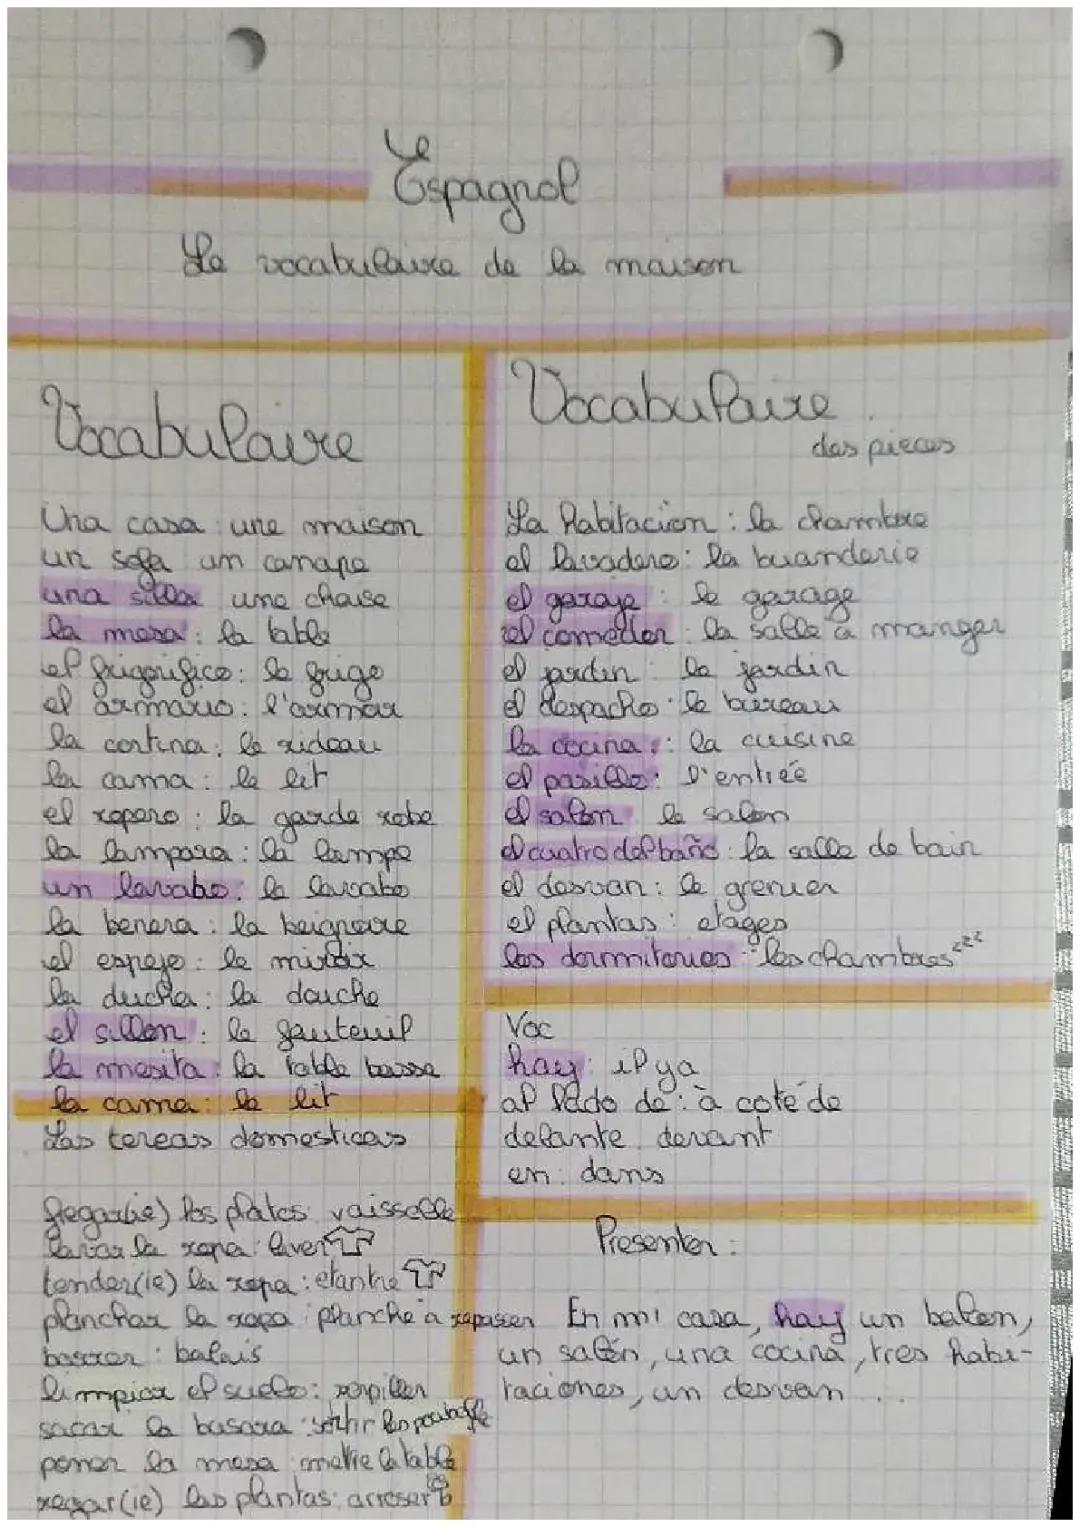 Espagnol
Le vocabulaire de la maison
Vocabulaire
Una casa : une maison
un sofa : un canape
una silla une chaise
la mesa : la table
el frigorifico : le frigo
el armario : l'armoir
la cortina : le rideau
la cama : le lit
el ropero : la garde robe
la lampara : la lampe
un lavabo : le lavabo
la benera : la beignoire
el espejo : le miroir
la ducha : la douche
el sillon : le fauteuil
la mesita : la table basse
la cama : le lit
Las tereas domesticas
fregar(ie) los platos : vaisselle
lavar la ropa : laver
tender(ie) la ropa : etantre
planchar la ropa : planche a repasser
barrer : balais
limpiar el suelo : serpiller
sacar la basara : sortir les poubelle
poner la mesa : metre la table
regar(ie) las plantas : arroser
Vocabulaire
des pieces
La habitacion : la chambre
el lavadero : la buanderie
el garaje : le garage
el comedor : la salle a manger
el jardin : le jardin
el despacho : le bureau
la cocina : la cuisine
el pasillo : l'entrée
el salon : le salon
el cuatro del baño : la salle de bain
el desvan : le grenier
el plantas : etages
los dormitorios : les chambres zzz
Voc
hay : il ya
al lado de : à coté de
delante : devant
en : dans
Presenter :
En mi casa, hay un balcon,
un salón, una cocina, tres habi-
taciones, un desvan ...